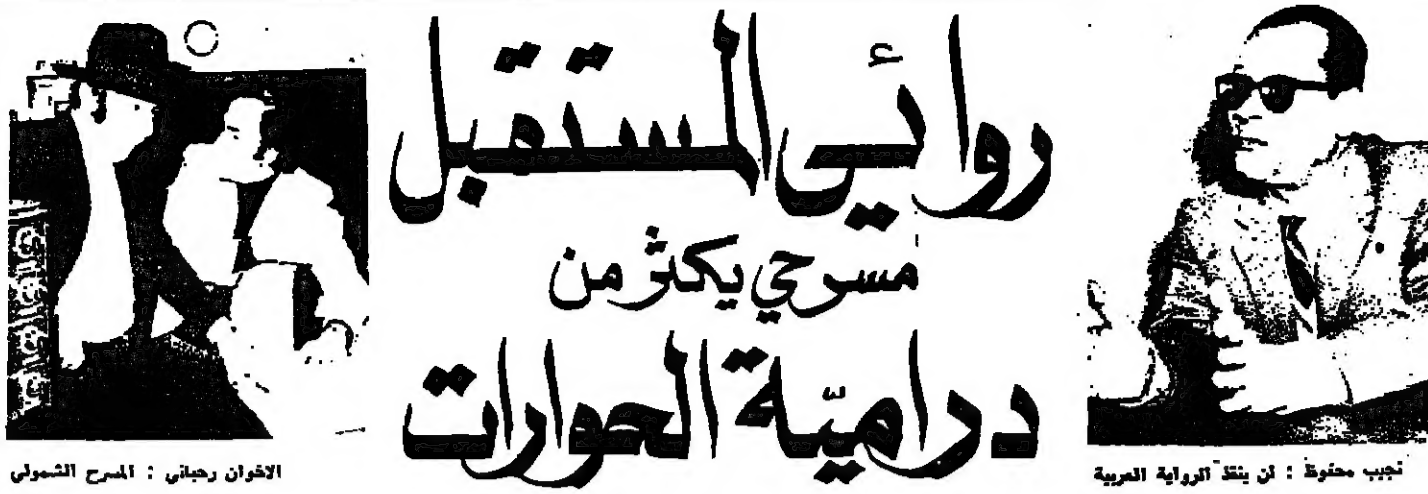 روائي المستقبل
مسرحي يكثر من
دراميّة الحوارات
نجيب محفوظ : لن ينقذ الرواية العربية
الاخوان رحباني : المسرح الشمولي